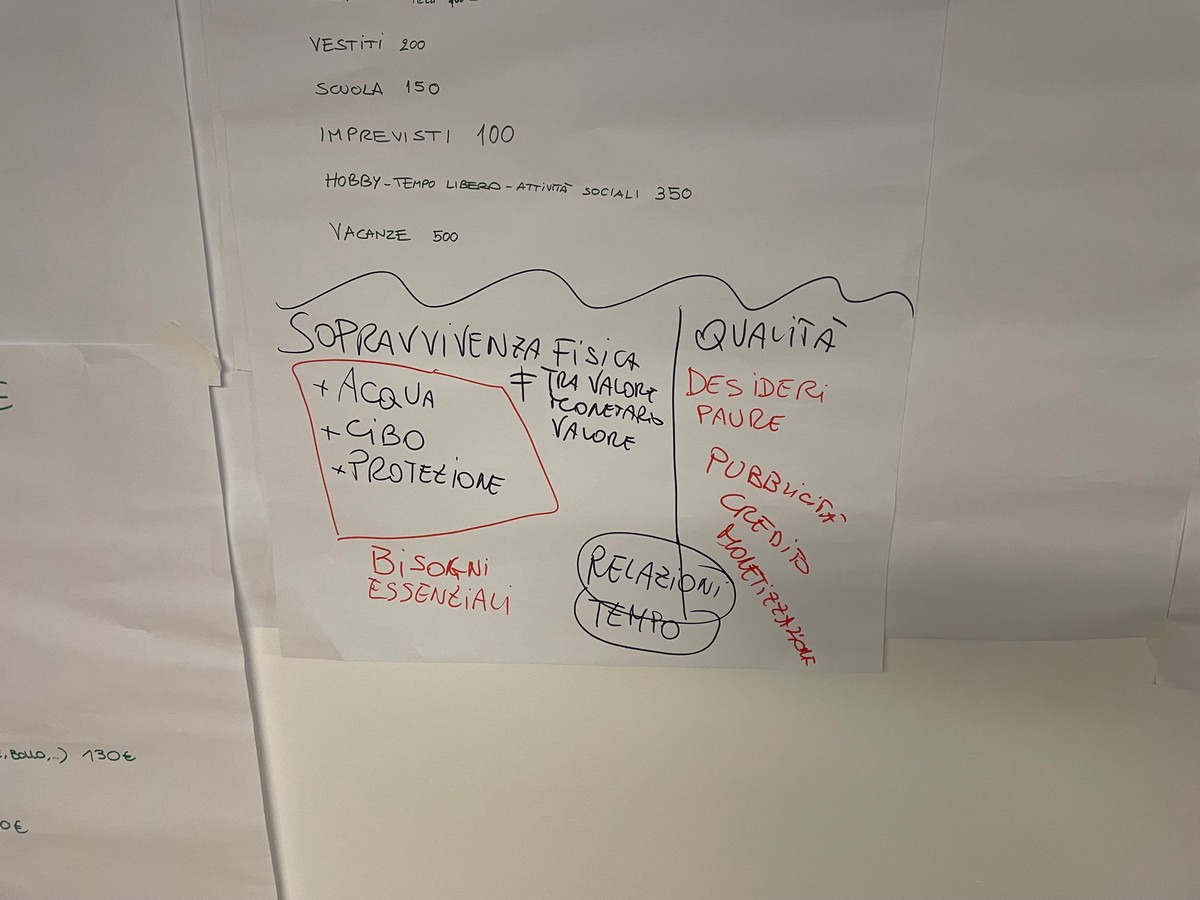 VESTITI 200
SCUOLA 150
IMPREVISTI 100
HOBBY - TEMPO LIBERO - ATTIVITÀ SOCIALI 350
VACANZE 500
SOPRAVVIVENZA FISICA
+ ACQUA
+ CIBO
+ PROTEZIONE
BISOGNI
ESSENZIALI
≠ TRA VALORE
MONETARIO
VALORE
RELAZIONI
TEMPO
QUALITÀ
DESIDERI
PAURE
PUBBLICITÀ
CREDITO
MONETIZZAZIONE
E
, BOLLO,...) 130€
0€